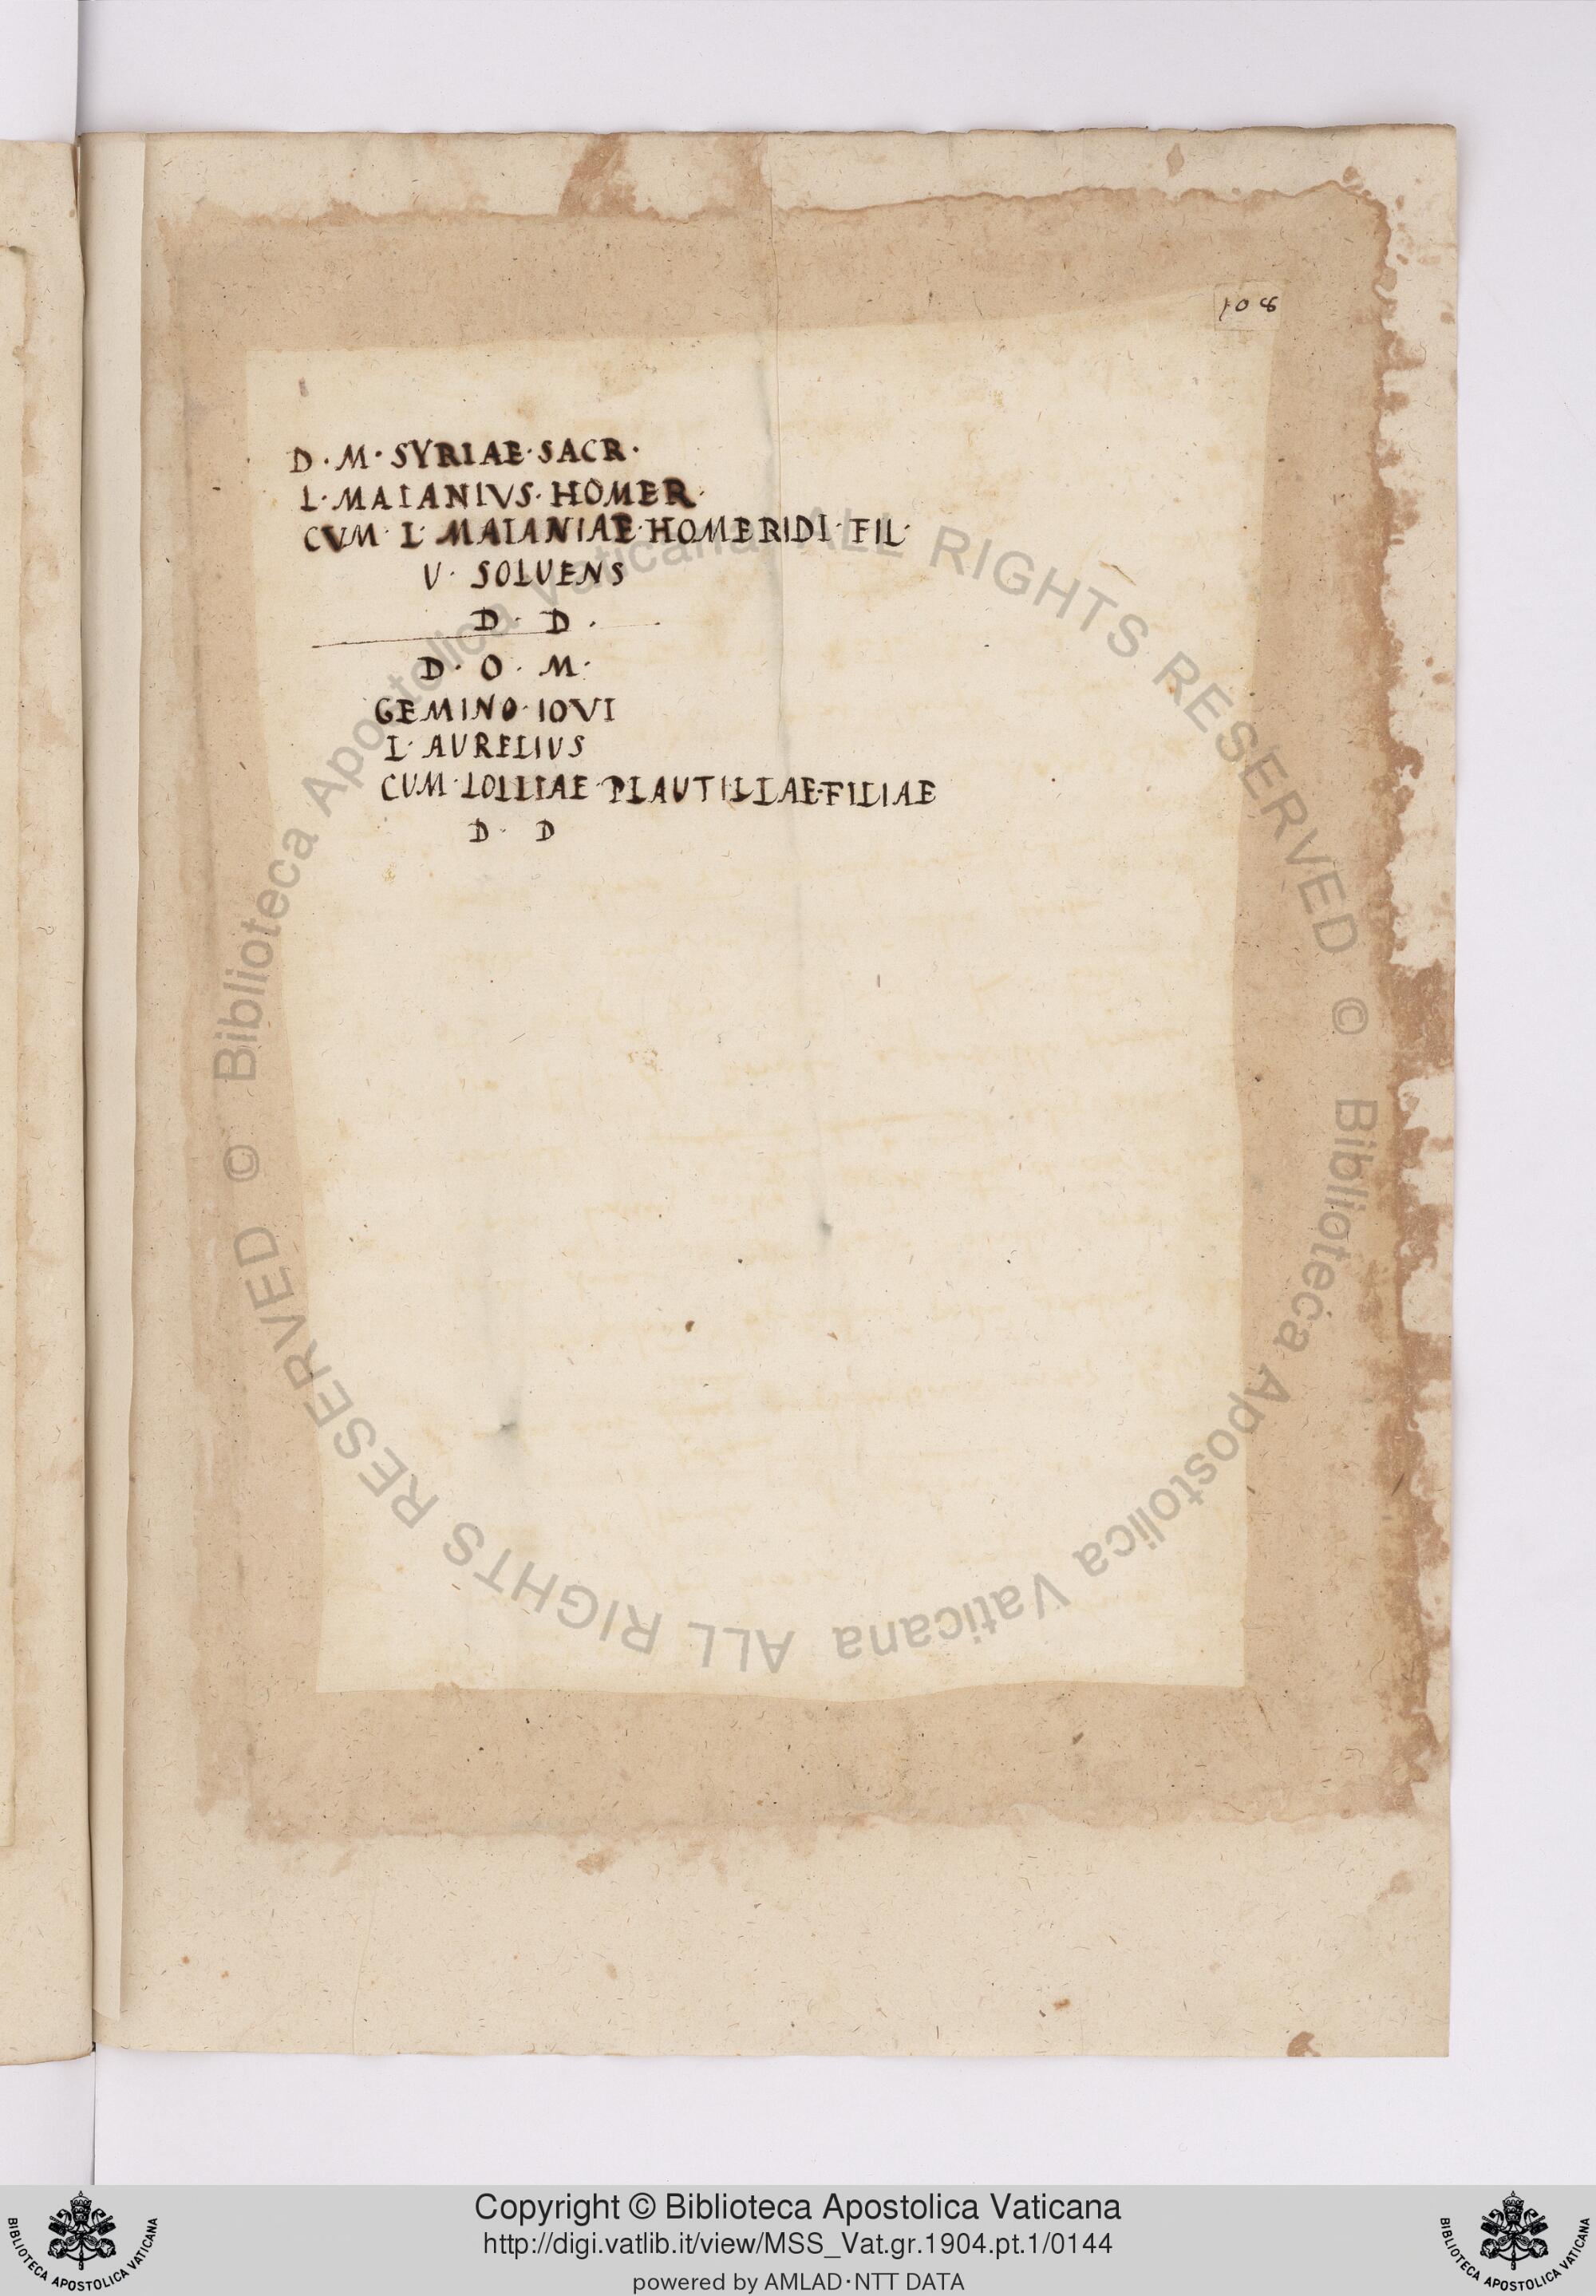 108
D · M · SYRIAE · SACR ·
L · MAIANIVS · HOMER ·
CVM · L · MAIANIAE · HOMERIDI · FIL ·
V · SOLVENS
D · D ·
D · O · M ·
GEMINO · IOVI
L · AURELIUS
CUM · LOLLIAE · PLAUTILLAE · FILIAE
D · D
© Biblioteca Apostolica Vaticana ALL RIGHTS RESERVED
© Biblioteca Apostolica Vaticana ALL RIGHTS RESERVED
Copyright © Biblioteca Apostolica Vaticana
http://digi.vatlib.it/view/MSS_Vat.gr.1904.pt.1/0144
powered by AMLAD·NTT DATA
BIBLIOTECA APOSTOLICA VATICANA
BIBLIOTECA APOSTOLICA VATICANA